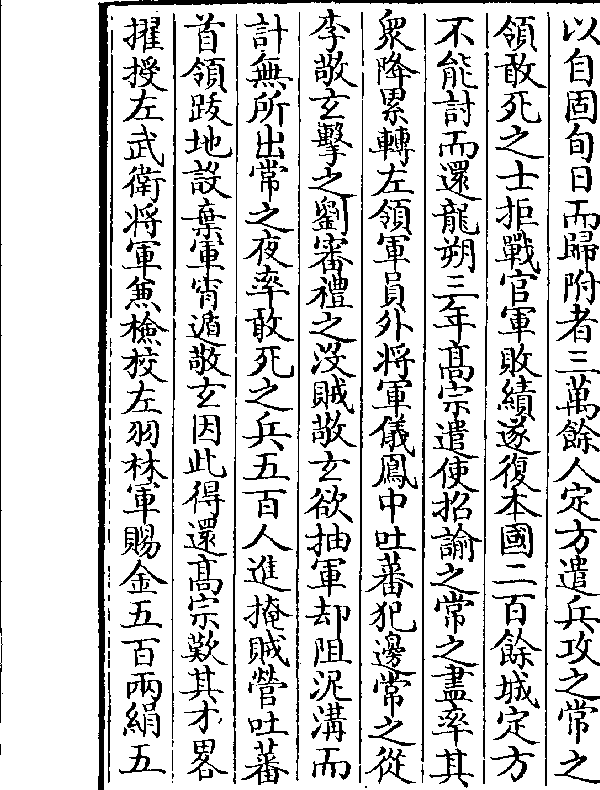 以自固旬日而歸附者三萬餘人定方遣兵攻之常之
領敢死之士拒戰官軍敗績遂復本國二百餘城定方
不能討而還龍朔三年高宗遣使招諭之常之盡率其
衆降累轉左領軍員外将軍儀鳳中吐蕃犯邊常之從
李敬玄擊之劉審禮之没賊敬玄欲抽軍却阻泥溝而
計無所出常之夜率敢死之兵五百人進掩賊營吐蕃
首領跋地設棄軍宵遁敬玄因此得還髙宗歎其才畧
擢授左武衛将軍兼檢校左羽林軍賜金五百兩絹五